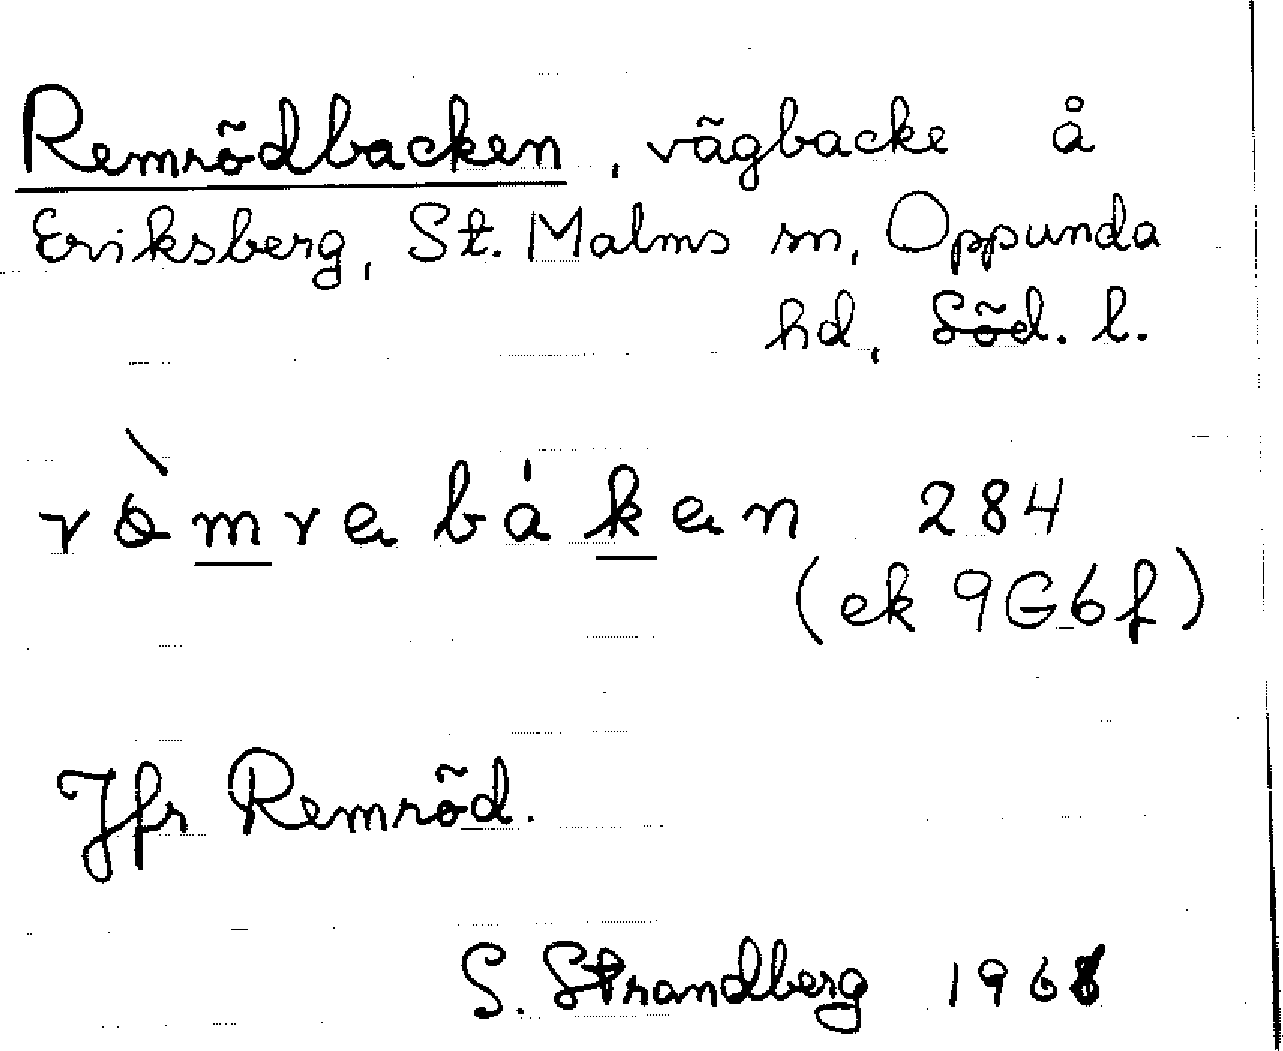 Remrödbacken, vägbacke å
Eriksberg, St. Malms sn, Oppunda
hd, Söd. l.
284
(ek 9G6f)
Jfr Remröd.
S. Strandberg 1968